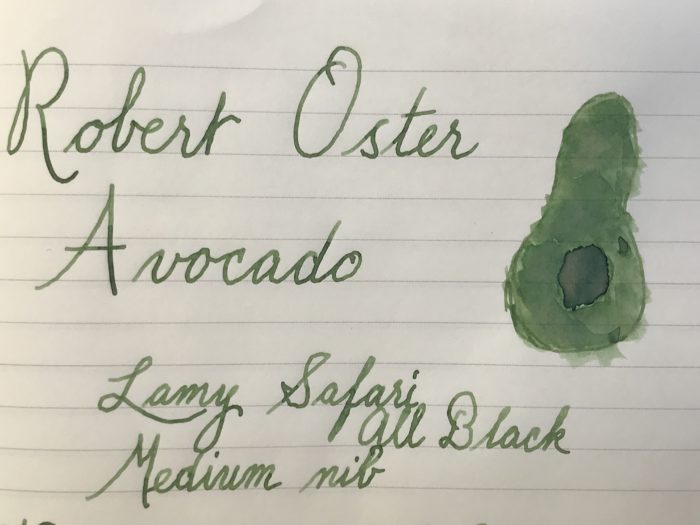 Robert Oster
Avocado
Lamy Safari
All Black
Medium nib